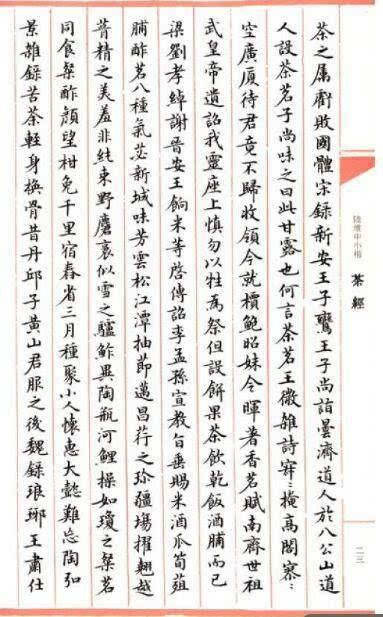 茶之屬虧敗國體宗錄新安王子鸞王子尚詣曇濟道人於八公山道
人設茶茗子尚味之曰此甘露也何言茶茗王微雜詩寂〻掩高閣寥〻
空廣厦待君竟不歸收領今就檟鮑昭妹令暉著香茗賦南齊世祖
武皇帝遺詔我靈座上慎勿以牲為祭但設餅果茶飲乾飯酒脯而已
梁劉孝綽謝晉安王餉米等啓傳詔李孟孫宣教旨垂賜米酒瓜筍菹
脯酢茗八種氣苾新城味芳雲松江潭抽節邁昌荇之珍疆場擢翹越
葺精之美羞非純束野麏裛似雪之驢鮓異陶瓶河鯉操如瓊之粲茗
同食粲酢顏望柑免千里宿舂省三月種聚小人懷惠大懿難忘陶弘
景雜錄苦茶輕身換骨昔丹邱子黃山君服之後魏錄琅琊王肅仕
小楷
茶經
二三